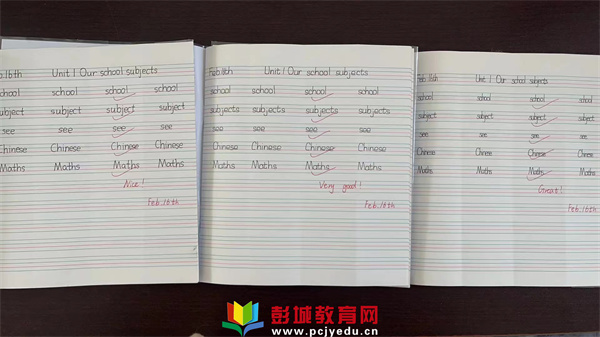 Feb.16th Unit 1 Our school subjects
school school school school
subject subject subject subject
see see see see
Chinese Chinese Chinese Chinese
Maths Maths Maths Maths
Nice!
Feb.16th
Feb.16th Unit 1 Our school subjects
school school school school
subjects subjects subjects subjects
see see see see
Chinese Chinese Chinese Chinese
Maths Maths Maths Maths
Very good!
Feb.16th
Feb.16th Unit 1 Our school subjects
school school school school
subject subject subject subject
see see see see
Chinese Chinese Chinese Chinese
Maths Maths Maths Maths
Great!
Feb.16th
彭城教育网
www.pcjyedu.cn